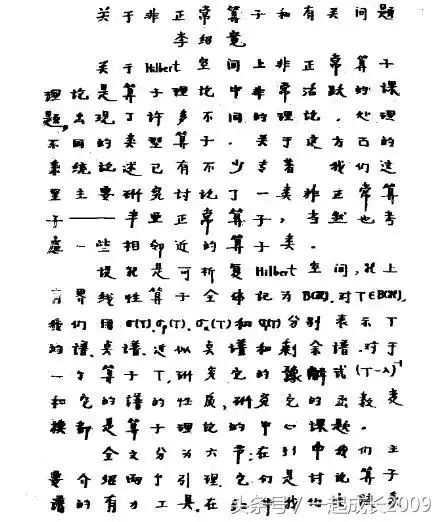 关于非正常算子和有关问题
李绍宽
关于Hilbert空间上非正常算子
理论是算子理论中非常活跃的课
题,出现了许多不同的理论,处理
不同的类型算子。关于这方面的
系统论述已有不少专著。我们这
里主要研究讨论了一类非正常算
子——半亚正常算子,当然也考
虑一些相邻近的算子类。
设H是可析复Hilbert空间,H上
有界线性算子全体记为B(H),对T∈B(H),
我们用σ(T),σp(T),σa(T)和σr(T)分别表示T
的谱、点谱、近似点谱和剩余谱。对于
一个算子T,研究它的豫解式(T-λ)⁻¹
和它的谱的性质,研究它的函数模
模都是算子理论的中心课题。
全文分为六节:在§1中我们主
要介绍两个引理,它们是讨论算子
谱的有力工具。在
头条号/一起成长2009